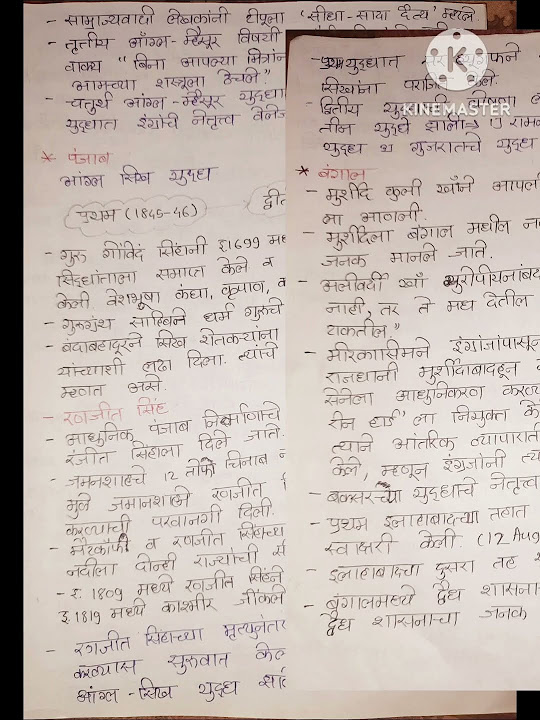 - साम्राज्यवादी लेखकांनी टीपूला 'सीधा-सादा दैत्य' म्हटले
- तृतीय आंग्ल-म्हैसूर विषयी
वाक्य "बिना आपल्या मित्रांन
आमच्या शत्रूला ठेचले"
- चतुर्थ आंग्ल-म्हैसूर युद्धा
युद्धात इंग्रांचे नेतृत्व वेलेज
* पंजाब
आंग्ल सिख युद्ध
प्रथम (1845-46)
द्वीत
- गुरु गोविंद सिंहानी इ1699 मध
सिद्धांताला समाप्त केले व
केली. वेशभूषा कंघा, कृपाण, क
- गुरुग्रंथ साहिबने धर्म गुरूचे
- बंदाबहादूरने सिख शेतकऱ्यांना
यांच्याशी लढा दिला. त्यांचे
म्हणत असे.
- रणजीत सिंह
- आधुनिक पंजाब निर्माणाचे
रंजीत सिंहाला दिले जाते.
- जमनशाहचे 12 तोफा चिनाब न
मुळे जमानशाहने रणजीत
करण्याची परवानगी दिली.
- मेटकॉफी व रणजीत सिंहाच्या
नदीला दोन्ही राज्यांची सी
- इ. 1809 मध्ये रणजीत सिंहने
इ.1819 मध्ये काश्मीर जींकले
- रणजीत सिंहाच्या मृत्यूनंतर
करण्यास सुरुवात केल
आंग्ल-सिख युद्ध झाले
- प्रथम युद्धात सर
सिखांना पराजीत केले.
- द्वितीय युद्धा
तीन युद्धे झाली रामन
युद्ध व गुजरातचे युद्ध
KINEMASTER
* बंगाल
- मुर्शीद कुली खाँने आपली
ला आणली.
- मुर्शीदला बंगाल मधील न
जनक मानले जाते.
- अलीवर्दी खाँ युरोपीयनांबद
नाही, तर ते मध देतील
टाकतील."
- मीरकासीमने इंग्रजांपासून
राजधानी मुर्शीदाबादहून
सेनेला आधुनिकरण करण्य
रीन हार्ड' ला नियुक्त के
त्याने आंतरिक व्यापारात
केले, म्हणून इंग्रजांनी त्य
- बक्सरच्या युद्धाचे नेतृत्व
- प्रथम इलाहाबादच्या तहात
स्वाक्षरी केली. (12 Aug
- इलाहाबादचा दुसरा तह श
- बंगालमध्ये द्वैध शासना
द्वैध शासनाचा जनक